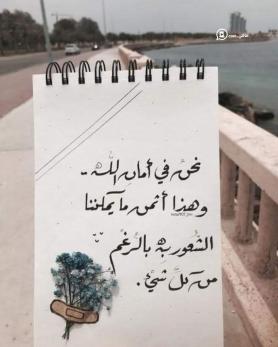 نحنُ في أمانِ اللّه ..
وهذا أثمن ما يمكننا
الشعور به بالرغم
من كلّ شيءٍ .